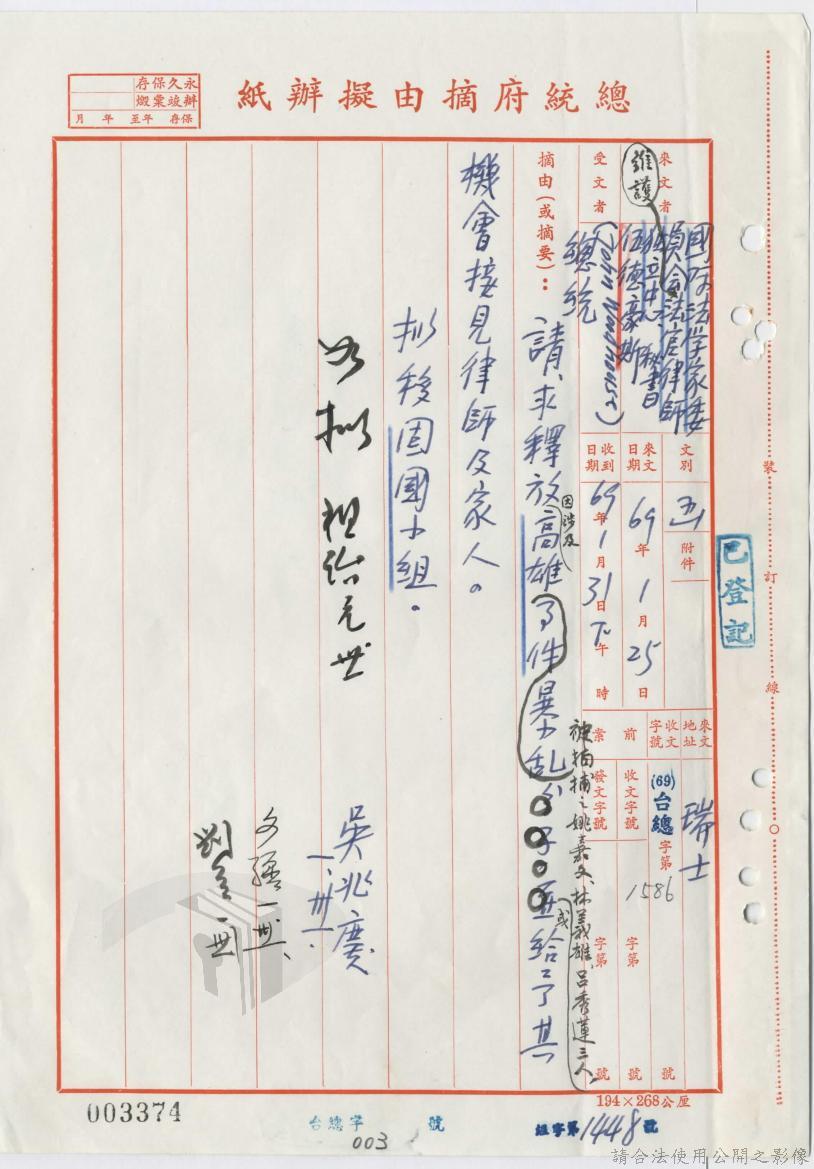 總統府摘由擬辦紙
永久保存
辦竣彙燬
保存 年至 年 月
來文者
國際法學家委
員會法官律師
獨立中心秘書
伍德豪斯
(John Woodhouse)
維護
受文者
總統
文別
函
附件
來文日期
69年1月25日
收到日期
69年1月31日下午 時
來文地址
瑞士
收文字號
(69)台總字第1586號
前案
收文字號
字第 號
發文字號
字第 號
摘由(或摘要):
請求釋放高雄事件暴亂分子並給予其
因涉及
被拘捕之姚嘉文、林義雄、呂秀蓮三人
或
機會接見律師及家人。
擬移固國小組。
如擬
吳兆廣
一、卅一.
已登記
裝訂線
194×268公厘
003374
台總字 003 號
組字第1448號
請合法使用公開之影像